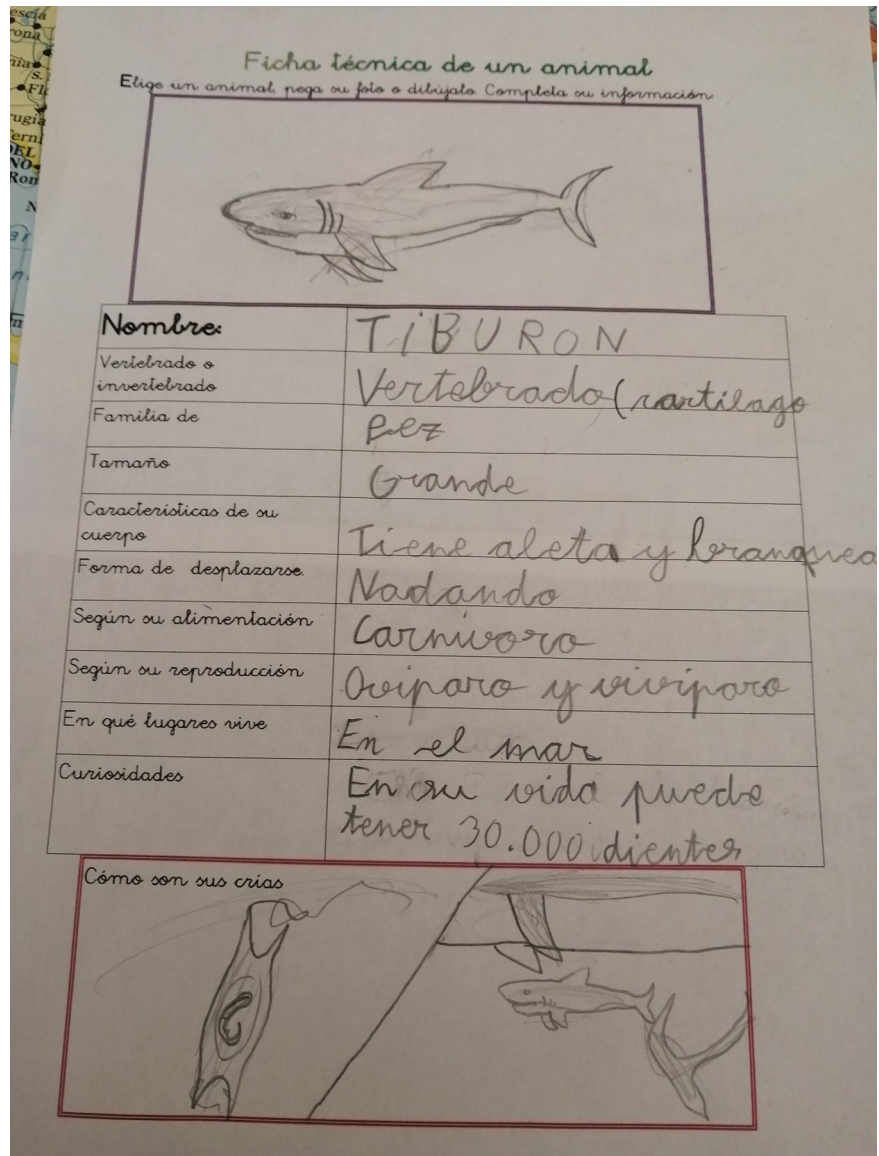 Ficha técnica de un animal
Elige un animal, pega su foto o dibújalo. Completa su información.
Nombre:
TiBURON
Vertebrado o
invertebrado
Vertebrado (cartilago
Familia de
Pez
Tamaño
Grande
Características de su
cuerpo
Tiene aleta y branquea
Forma de desplazarse.
Nadando
Según su alimentación
Carnívoro
Según su reproducción
Oviparo y vivíparo
En qué lugares vive
En el mar
Curiosidades
En su vida puede
tener 30.000 dientes
Cómo son sus crias